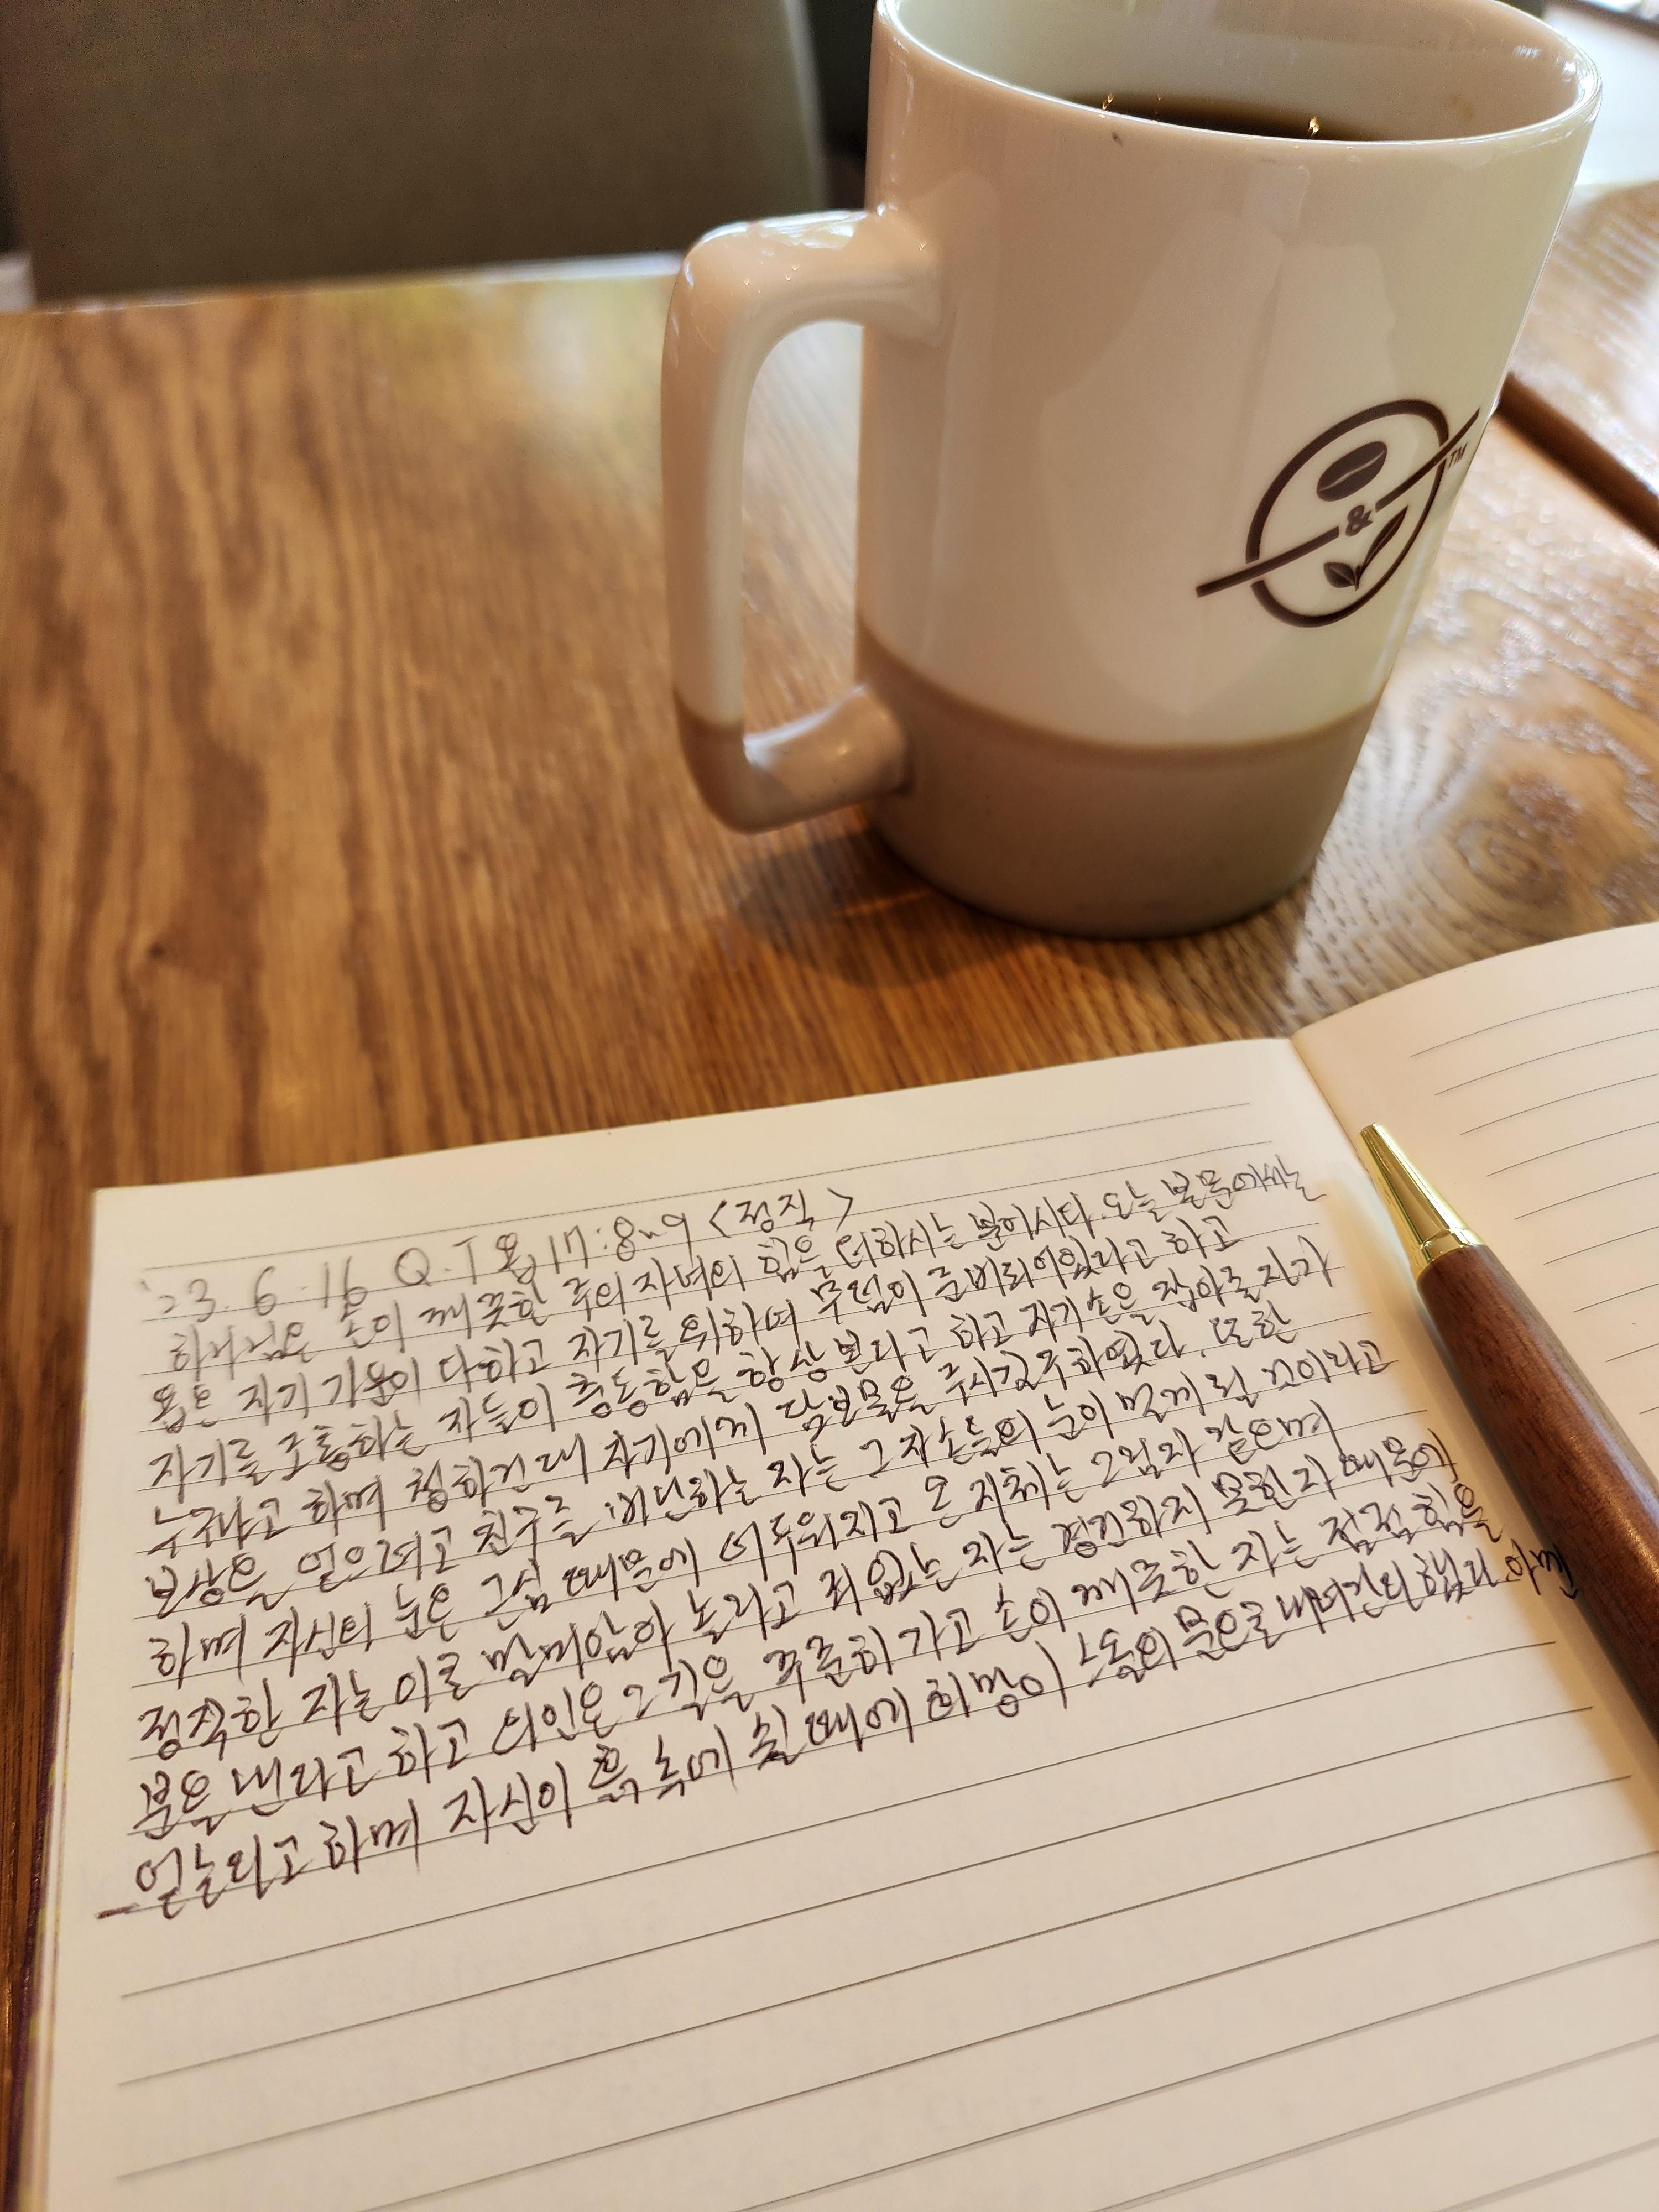 TM
&
'23. 6. 16 Q.T 욥17:8~9 <정직>
하나님은 손이 깨끗한 주의 자녀의 힘을 더하시는 분이시다. 오늘 본문에서는
욥은 자기 기운이 다하고 자기를 위하여 무덤이 준비되어있다고 하고
자기를 조롱하는 자들이 충동함을 항상 본다고 하고 자기 손을 잡아줄 자가
누구냐고 하며 청하건대 자기에게 담보물을 주시길 구하였다. 또한
보상을 얻으려고 친구를 비난하는 자는 그 자손들의 눈이 멀게 될 것이라고
하며 자신의 눈은 근심 때문에 어두워지고 온 지체는 그림자 같으며
정직한 자는 이로 말미암아 놀라고 죄 없는 자는 경건하지 못한 자 때문에
분을 낸다고 하고 의인은 그 길을 꾸준히 가고 손이 깨끗한 자는 점점 힘을
얻느니라고 하며 자신이 흙 속에 쉴 때에 희망이 스올의 문으로 내려간다 했다